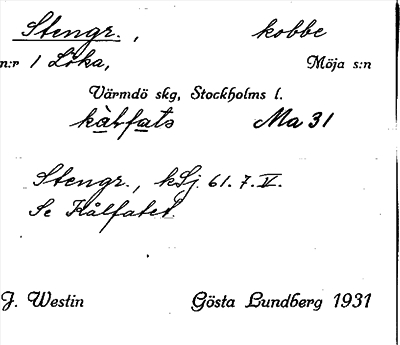 Stengr., kobbe
n:r 1 Löka, Möja s:n
Värmdö skg, Stockholms l.
kàlfats Ma 31
Stengr., kSj. 61.7.V.
Se Kålfatet.
J. Westin Gösta Lundberg 1931